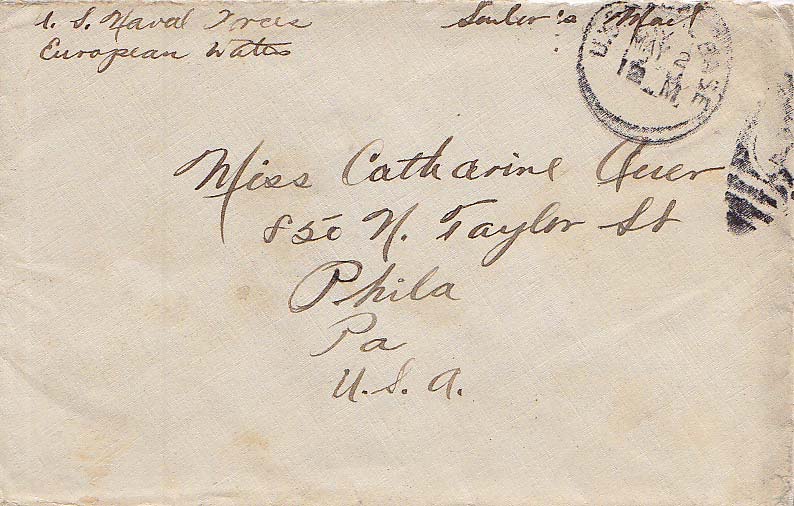 U. S. Naval Forces Sailor's Mail
European Waters
U.S. BASE
MAY 2
M.
Miss Catharine Auer
850 N. Taylor St
Phila
Pa
U.S.A.